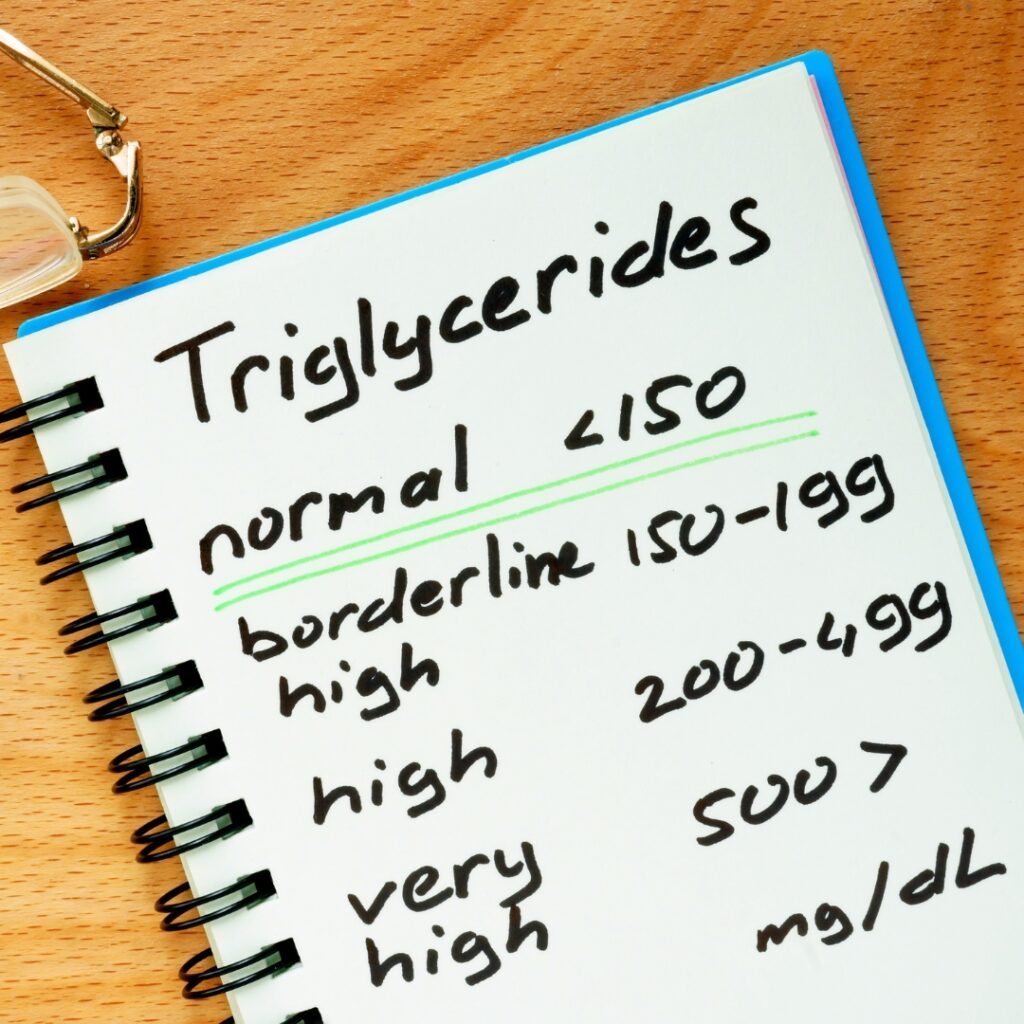 Triglycerides
normal <150
borderline 150-199
high
high 200-499
very 500 >
high
mg/dL